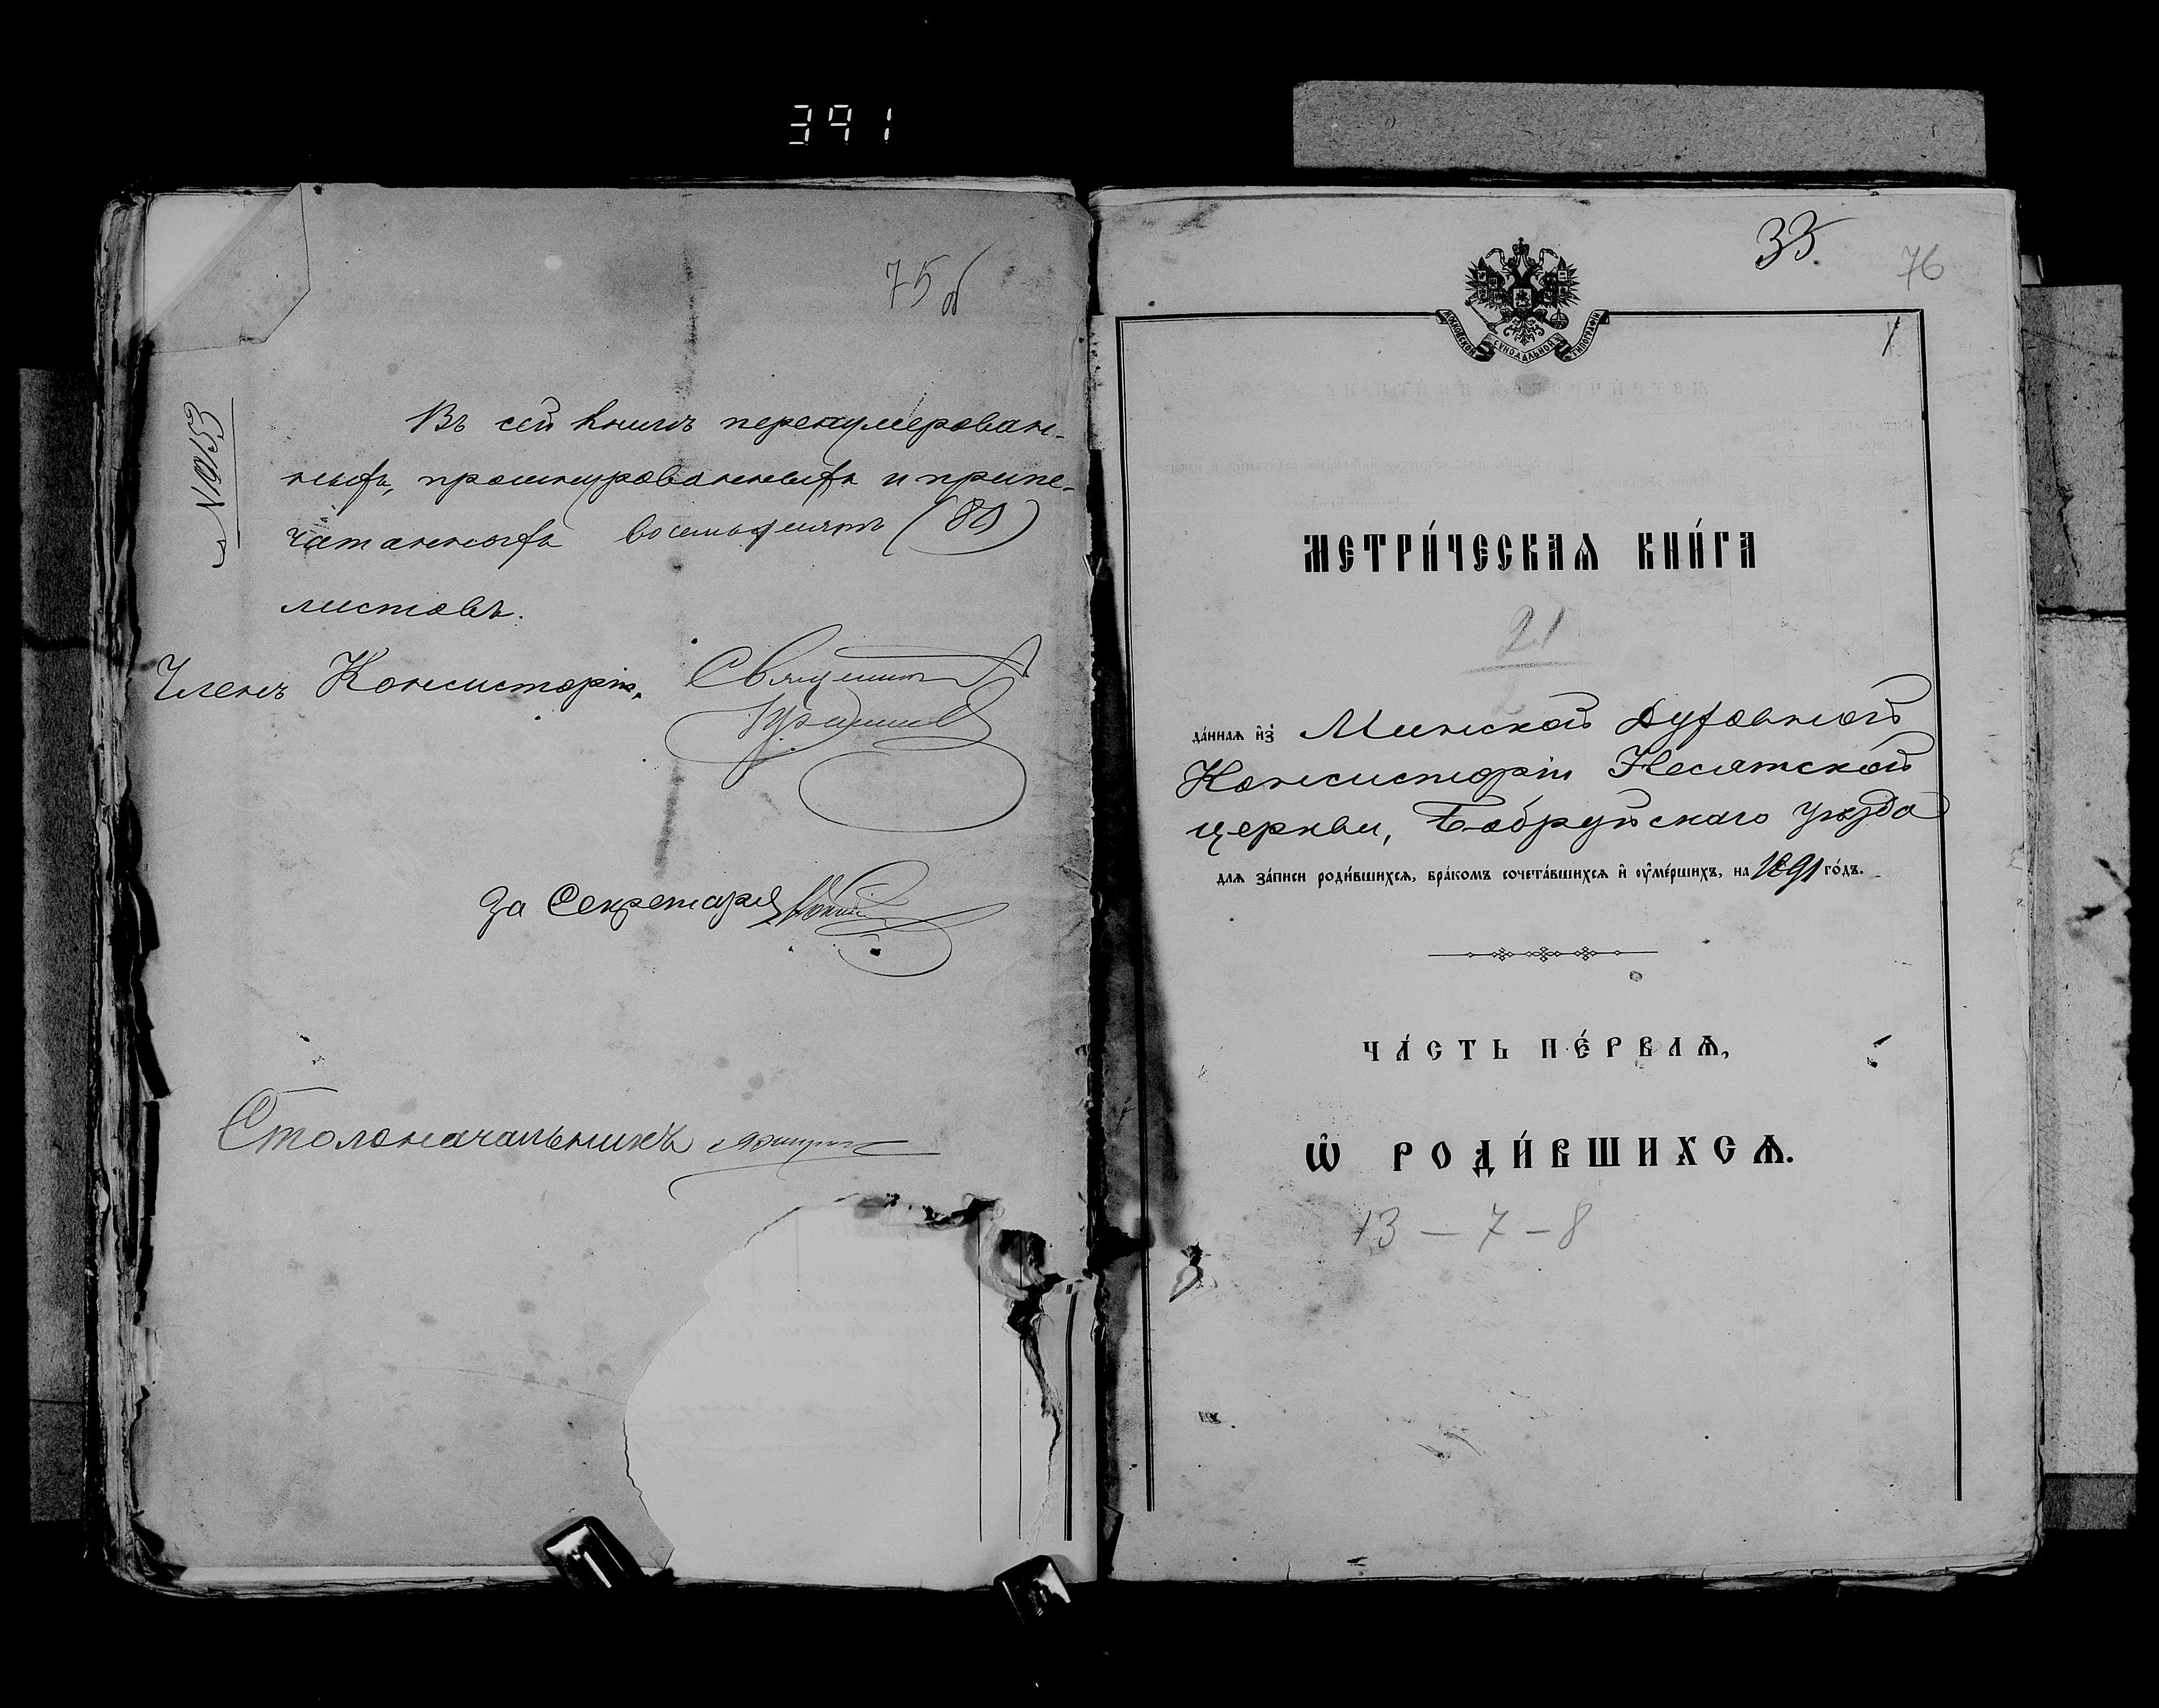 391
75 об
Въ сей книгѣ перенумерован-
ныхъ, прошнурованныхъ и припе-
чатанныхъ восемьдесятъ (80)
листовъ.
Членъ Консисторіи, Священникъ
За Секретаря
Столоначальникъ
33
76
1
МОСКОВСКОЙ СѴНОДАЛЬНОЙ ТИПОГРАФІИ
МЕТРИ́ЧЕСКАѦ КНИ́ГА
21
да́ннаѧ и҆зъ Минской Духовной
Консисторіи Несятской
церкви, Бобруйскаго уѣзда
длѧ за́писи роди́вшихсѧ, бра́комъ сочета́вшихсѧ и҆ оу҆ме́ршихъ, на 1891 го́дъ.
ЧА́СТЬ ПЕ́РВАѦ,
Ѡ҆ РОДИ́ВШИХСѦ.
13 — 7 — 8